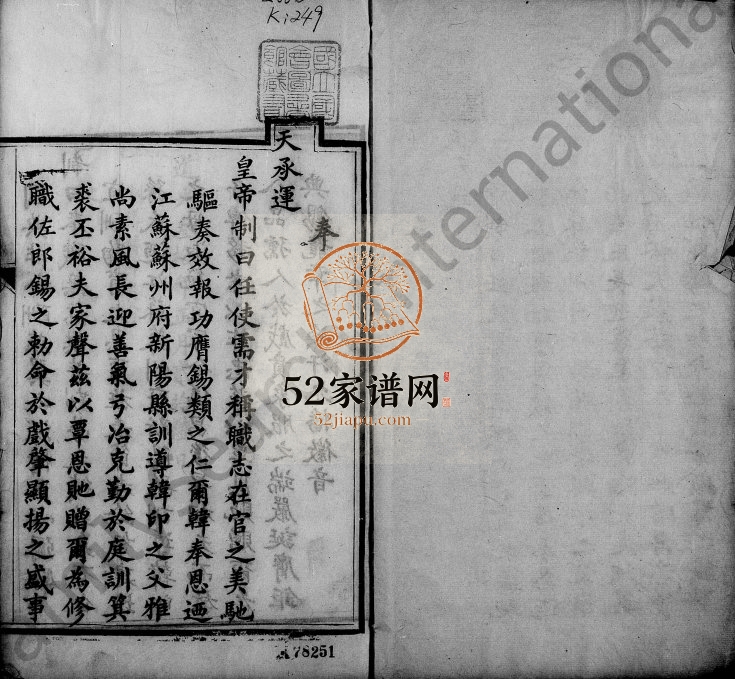 Ki249
國立國
會圖書
館藏書
奉
天承運
皇帝制曰任使需才稱職志在官之美馳
驅奏效報功膺錫類之仁爾韓奉恩迺
江蘇蘇州府新陽縣訓導韓印之父雅
尚素風長迎善氣弓冶克勤於庭訓箕
裘丕裕夫家聲茲以覃恩貤贈爾為修
職佐郎錫之勅命於戲肇顯揚之盛事
52家谱网
52jiapu.com
78251